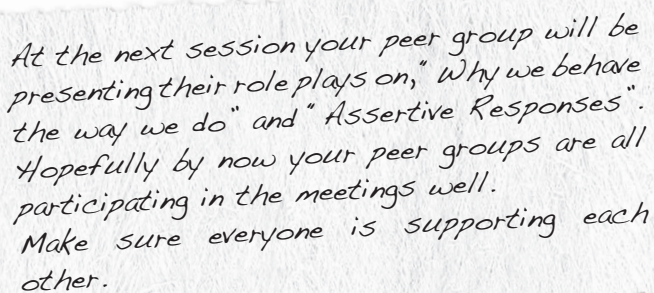 At the next session your peer group will be
presenting their role plays on,"Why we behave
the way we do" and "Assertive Responses".
Hopefully by now your peer groups are all
participating in the meetings well.
Make sure everyone is supporting each
other.